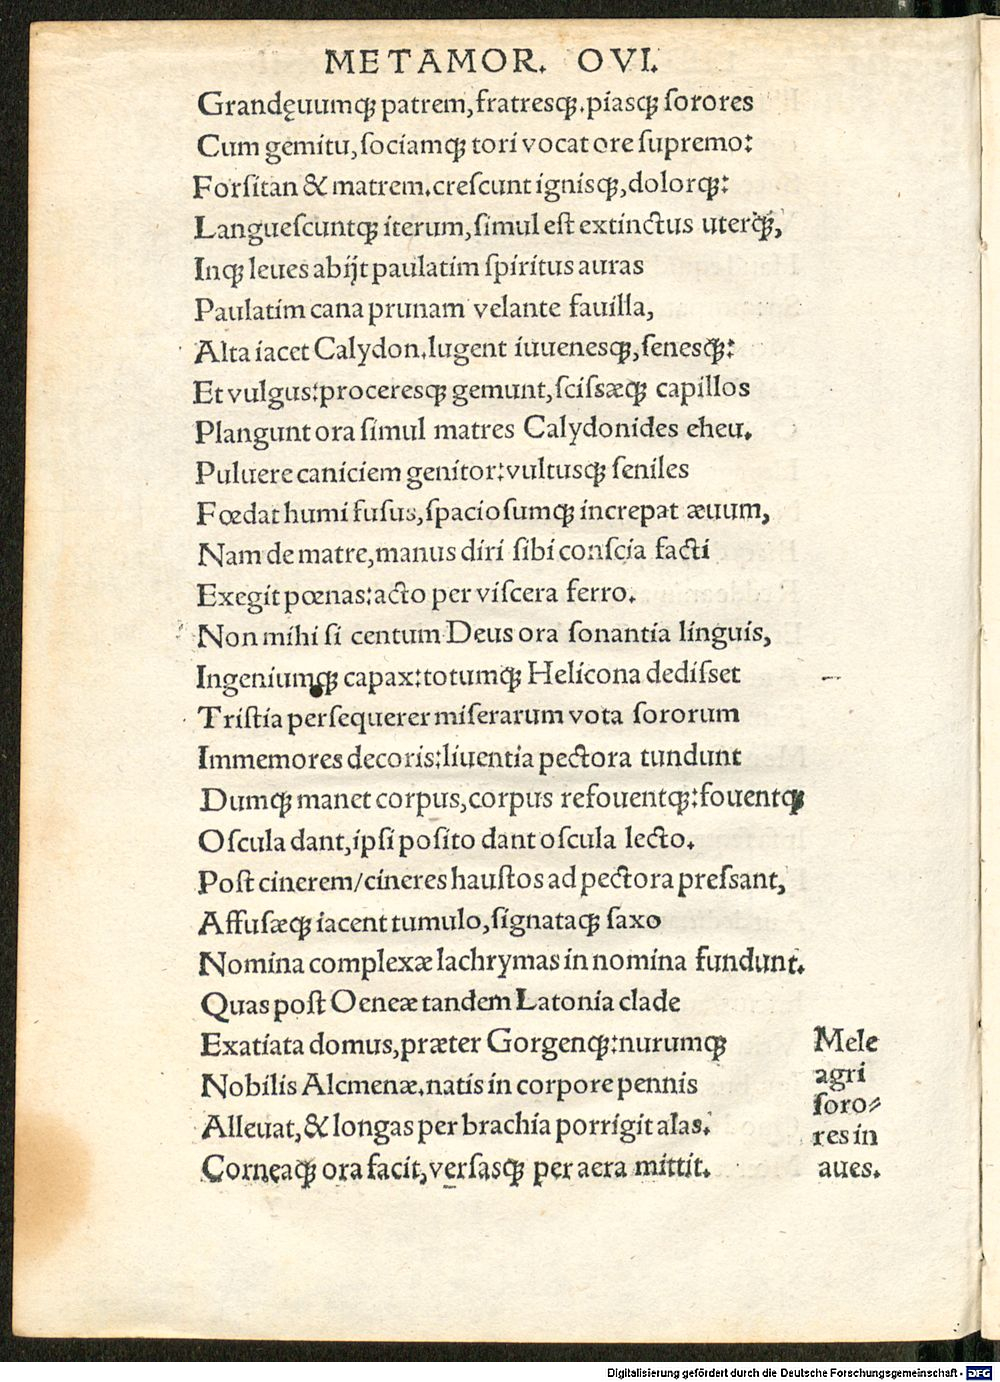 METAMOR. OVI.
Grandęuumqꝫ patrem, fratresqꝫ. piasqꝫ ſorores
Cum gemitu, ſociamqꝫ tori vocat ore ſupremo:
Forſitan & matrem. creſcunt ignisqꝫ, dolorqꝫ:
Langueſcuntqꝫ iterum, ſimul eſt extinctus uterqꝫ,
Inqꝫ leues abijt paulatim ſpiritus auras
Paulatim cana prunam velante fauilla,
Alta iacet Calydon. lugent iuuenesqꝫ, ſenesqꝫ:
Et vulgus: proceresqꝫ gemunt, ſciſsæqꝫ capillos
Plangunt ora ſimul matres Calydonides eheu.
Puluere caniciem genitor: vultusqꝫ ſeniles
Fœdat humi fuſus, ſpacioſumqꝫ increpat æuum,
Nam de matre, manus diri ſibi conſcia facti
Exegit pœnas: acto per viſcera ferro.
Non mihi ſi centum Deus ora ſonantia linguis,
Ingeniumqꝫ capax: totumqꝫ Helicona dediſset
Triſtia perſequerer miſerarum vota ſororum
Immemores decoris: liuentia pectora tundunt
Dumqꝫ manet corpus, corpus refouentqꝫ: fouentqꝫ
Oſcula dant, ipſi poſito dant oſcula lecto.
Poſt cinerem/cineres hauſtos ad pectora preſsant,
Affuſæqꝫ iacent tumulo, ſignataqꝫ ſaxo
Nomina complexæ lachrymas in nomina fundunt.
Quas poſt Oeneæ tandem Latonia clade
Exatiata domus, præter Gorgenqꝫ: nurumqꝫ
Nobilis Alcmenæ. natis in corpore pennis
Alleuat, & longas per brachia porrigit alas.
Corneaqꝫ ora facit, verſasqꝫ per aera mittit.
Mele
agri
ſoro⸗
res in
aues.
Digitalisierung gefördert durch die Deutsche Forschungsgemeinschaft - DFG